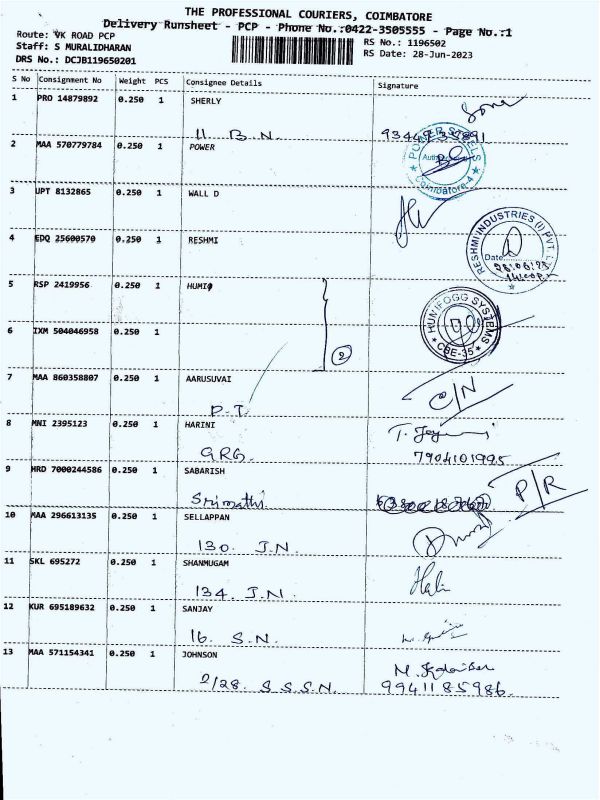 THE PROFESSIONAL COURIERS, COIMBATORE
Delivery Runsheet - PCP - Phone No.:0422-3505555 - Page No.:1
Route: VK ROAD PCP
Staff: S MURALIDHARAN
DRS No.: DCJB119650201
RS No.: 1196502
RS Date: 28-Jun-2023
S No Consignment No Weight PCS Consignee Details Signature
1 PRO 14879892 0.250 1 SHERLY
11 B.N.
2 MAA 570779784 0.250 1 POWER
POWER STEELS
Coimbatore-4
3 UPT 8132865 0.250 1 WALL D
4 EDQ 25600570 0.250 1 RESHMI
RESHMI INDUSTRIES (I) PVT. L
Date
5 RSP 2419956 0.250 1 HUMI
HUMIFOGG SYSTEMS
CBE-35
6 IXM 504046958 0.250 1
2
7 MAA 860358807 0.250 1 AARUSUVAI
P.T. C/N
8 MNI 2395123 0.250 1 HARINI
GRG. 7904101995
9 MRD 7000244586 0.250 1 SABARISH
Srimathi P/R
10 MAA 296613135 0.250 1 SELLAPPAN
130. J.N.
11 SKL 695272 0.250 1 SHANMUGAM
134. J.N.
12 KUR 695189632 0.250 1 SANJAY
16. S.N.
13 MAA 571154341 0.250 1 JOHNSON
2/28. S.S.S.N. 9941185986.